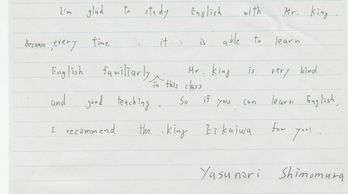 I'm glad to study English with Mr. King.
Because, every time it is able to learn
English familiarly in this class. Mr. King is very kind
and good teaching. So if you can learn English,
I recommend the King Eikaiwa for you.
Yasunori Shimomura